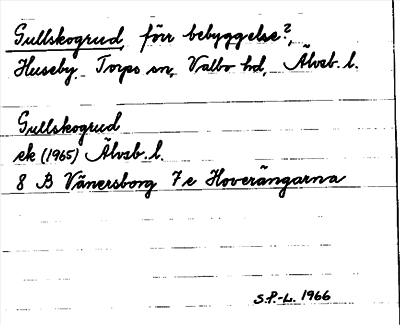 Gullskogrud, förr bebyggelse?,
Huseby Torps sn, Valbo hd, Älvsb. l.
Gullskogrud
ek (1965) Älvsb. l.
8 B Vänersborg 7 e Hoverängarna
S.P.-L. 1966